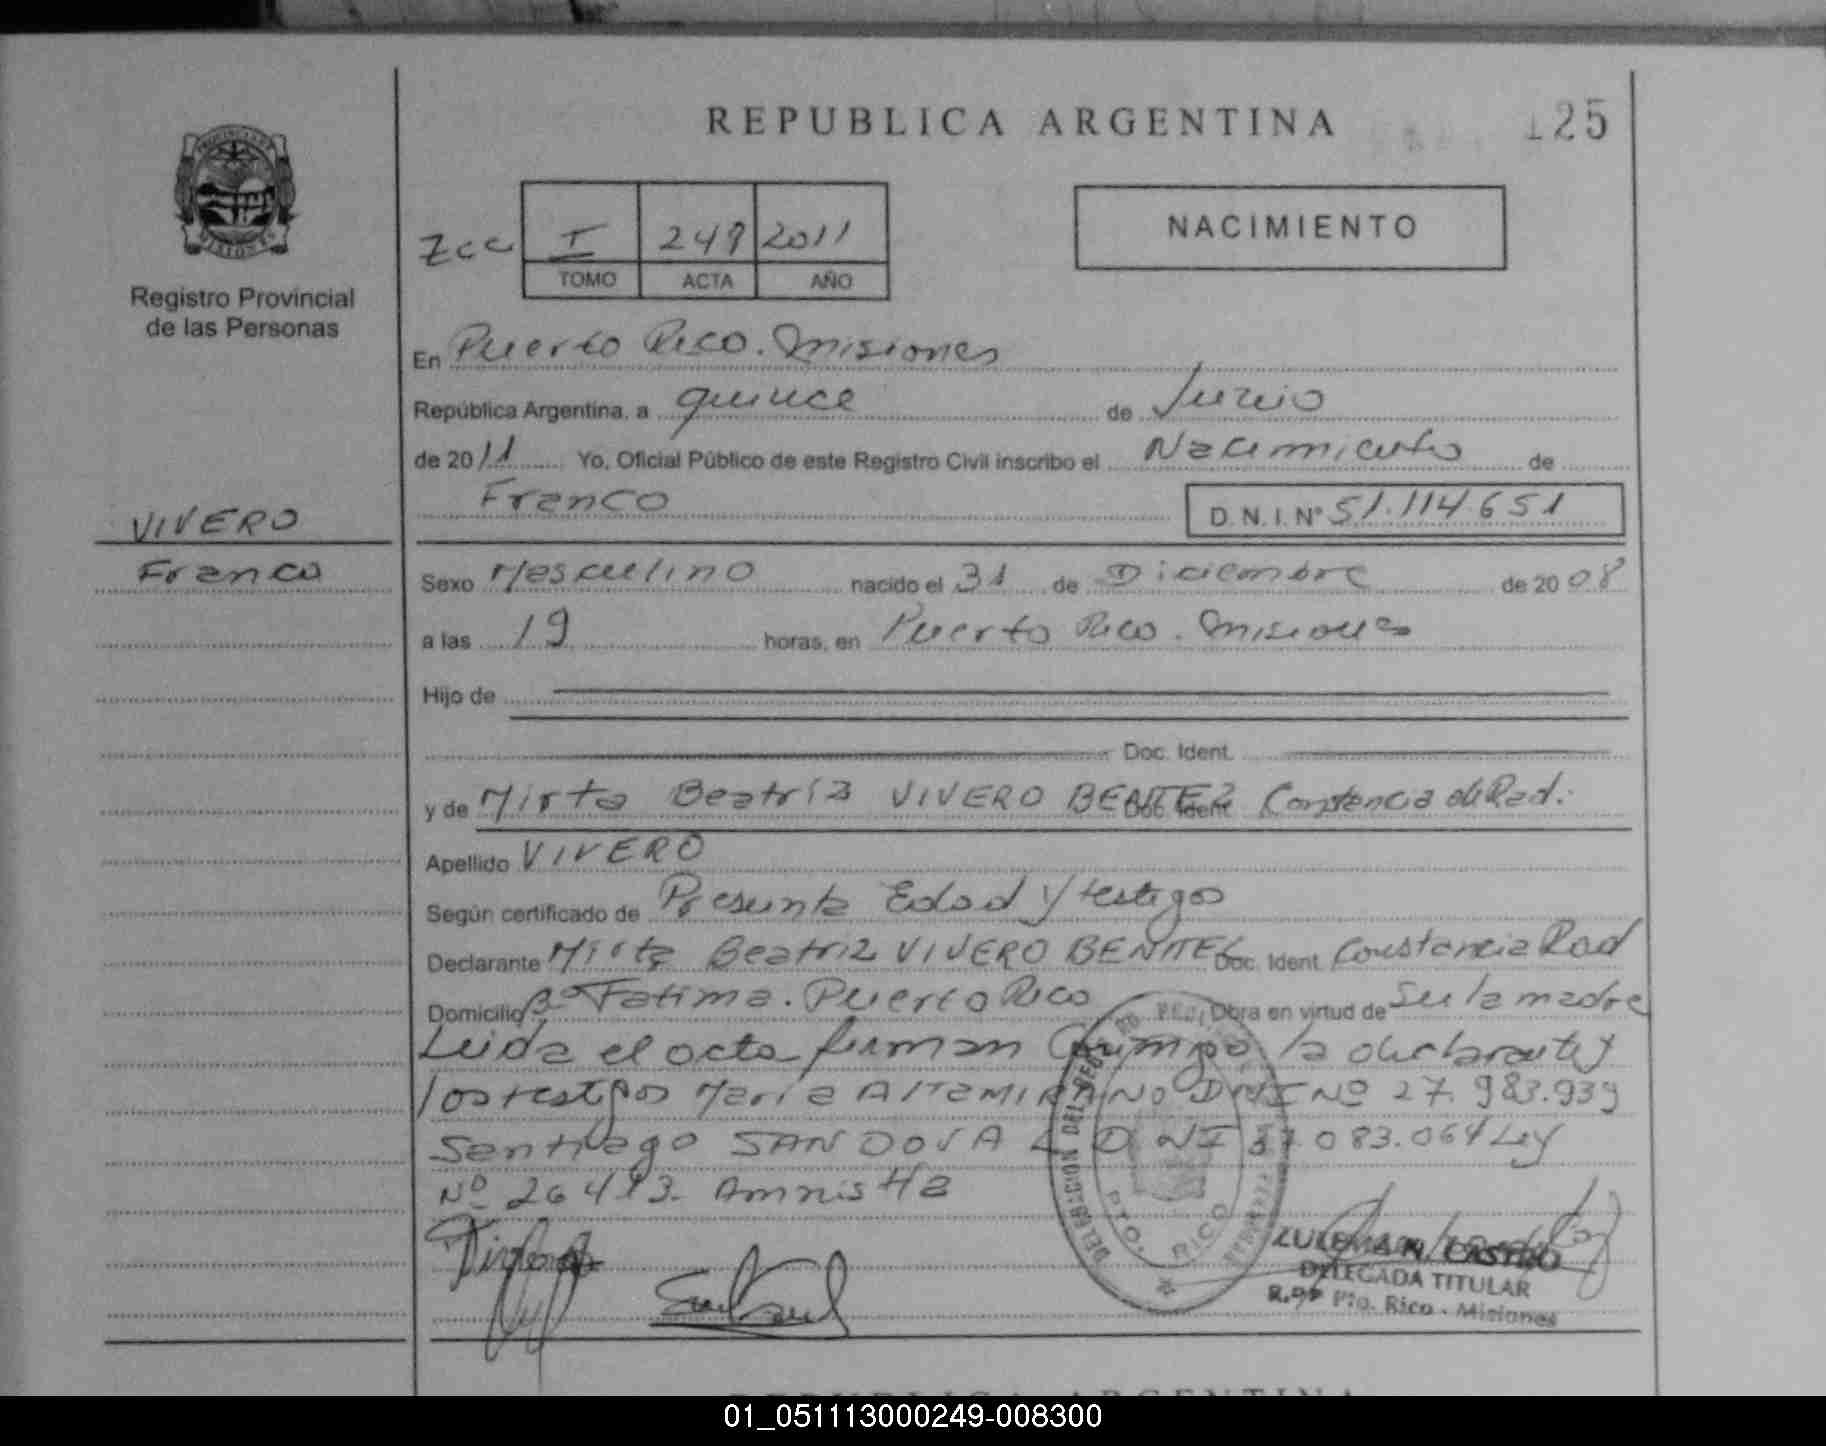 REPUBLICA ARGENTINA
125
PROVINCIA DE MISIONES
Registro Provincial
de las Personas
Zcc I 249 2011
TOMO ACTA AÑO
NACIMIENTO
En Puerto Rico. Misiones
República Argentina, a quince de Junio
de 2011 Yo, Oficial Público de este Registro Civil inscribo el Nacimiento de
Franco
D.N.I.Nº 51.114.651
VIVERO
Franco
Sexo Masculino nacido el 31 de Diciembre de 2008
a las 19 horas, en Puerto Rico. Misiones
Hijo de
Doc. Ident.
y de Mirta Beatriz VIVERO BENITEZ Doc. Ident. Constancia de Rad.
Apellido VIVERO
Según certificado de Presunta Edad y testigos
Declarante Mirta Beatriz VIVERO BENITEZ Doc. Ident. Constancia Rad
Domicilio Bº Fatima. Puerto Rico Obra en virtud de Ser la madre
Leida el acta firman conmigo la declarante y
los testigos Maria AlTaMIRANO DNI Nº 27.983.939
Santiago SANDOVAL DNI 37.083.064 Ley
Nº 26413. Amnistia
DELEGACION DEL REGISTRO
PTO. RICO
ZULEMA N. CASTRO
DELEGADA TITULAR
R.9P Pto. Rico - Misiones
REPUBLICA ARGENTINA
01_051113000249-008300